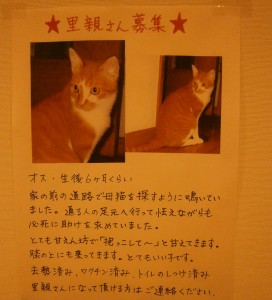 ★里親さん募集★
オス・生後6ヶ月くらい
家の前の道路で母猫を探すように鳴いて
いました。通る人の足元へ行って怯えながらも
必死に助けを求めていました。
とても甘えん坊で「抱っこして〜」と甘えてきます。
膝の上にも乗ってきます。とてもいい子です。
去勢済み、ワクチン済み、トイレのしつけ済み
里親さんになって頂ける方はご連絡ください。